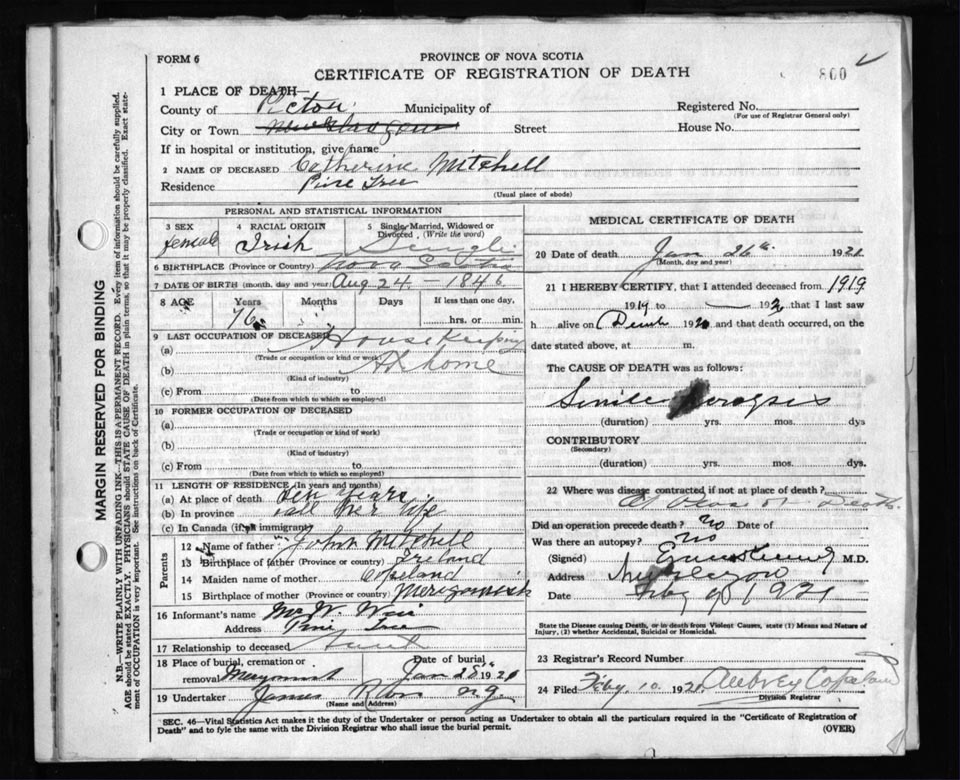 FORM 6
PROVINCE OF NOVA SCOTIA
CERTIFICATE OF REGISTRATION OF DEATH
800
1 PLACE OF DEATH—
County of Pictou Municipality of Registered No.
(For use of Registrar General only)
City or Town New Glasgow Street House No.
If in hospital or institution, give name
2 NAME OF DECEASED Catherine Mitchell
Residence Pine Tree
(Usual place of abode)
PERSONAL AND STATISTICAL INFORMATION
3 SEX female
4 RACIAL ORIGIN Irish
5 Single, Married, Widowed or Divorced (Write the word) Single
6 BIRTHPLACE (Province or Country) Nova Scotia
7 DATE OF BIRTH (month, day and year) Aug 24 – 1846
8 AGE Years Months Days If less than one day,
76 hrs. or min.
9 LAST OCCUPATION OF DECEASED
(a) Housekeeping
(Trade or occupation or kind of work)
(b) At home
(Kind of industry)
(c) From to
(Date from which to which so employed)
10 FORMER OCCUPATION OF DECEASED
(a)
(Trade or occupation or kind of work)
(b)
(Kind of industry)
(c) From to
(Date from which to which so employed)
11 LENGTH OF RESIDENCE (In years and months)
(a) At place of death ten years
(b) In province all her life
(c) In Canada (if an immigrant)
Parents
12 Name of father John Mitchell
13 Birthplace of father (Province or country) Ireland
14 Maiden name of mother Copeland
15 Birthplace of mother (Province or country) Merigomish
16 Informant's name W. Weir
Address Pine Tree
17 Relationship to deceased Aunt
18 Place of burial, cremation or removal Date of burial
Jan 28 1921
19 Undertaker James N.G.
(Name and Address)
MEDICAL CERTIFICATE OF DEATH
20 Date of death Jan 26th 1921
(Month, day and year)
21 I HEREBY CERTIFY, that I attended deceased from 1919
1919 to — 192 that I last saw
h alive on 1920 and that death occurred, on the
date stated above, at m.
The CAUSE OF DEATH was as follows:
Senile
(duration) yrs. mos. dys
CONTRIBUTORY
(Secondary)
(duration) yrs. mos. dys.
22 Where was disease contracted if not at place of death?
At Place of Death.
Did an operation precede death? no Date of
Was there an autopsy? no
(Signed) M.D.
Address New Glasgow
Date Feby 9 1921
State the Disease causing Death, or in death from Violent Causes, state (1) Means and Nature of
Injury, (2) whether Accidental, Suicidal or Homicidal.
23 Registrar's Record Number
24 Filed Feby 10 1921 Aubrey Copeland
Division Registrar
SEC. 46—Vital Statistics Act makes it the duty of the Undertaker or person acting as Undertaker to obtain all the particulars required in the "Certificate of Registration of
Death" and to fyle the same with the Division Registrar who shall issue the burial permit. (OVER)
MARGIN RESERVED FOR BINDING
N.B.—WRITE PLAINLY WITH UNFADING INK—THIS IS A PERMANENT RECORD. Every item of information should be carefully supplied.
AGE should be stated EXACTLY. PHYSICIANS should STATE CAUSE OF DEATH in plain terms, so that it may be properly classified. Exact statement
of OCCUPATION is very important. See instructions on back of Certificate.